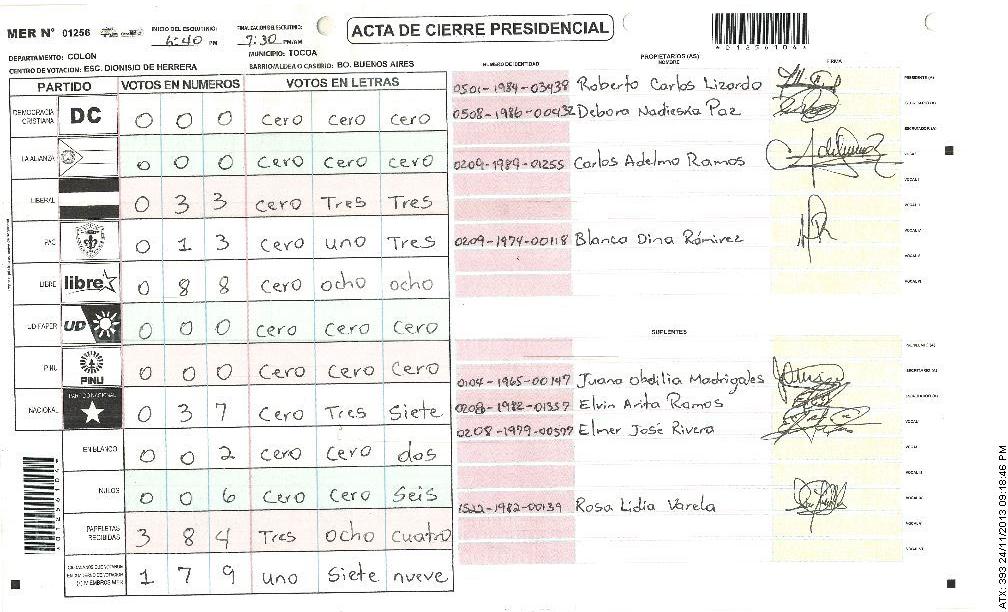 MER N° 01256
INICIO DEL ESCRUTINIO: 6:40 PM
FINALIZACION DEL ESCRUTINIO: 7:30 PM/AM
ACTA DE CIERRE PRESIDENCIAL
DEPARTAMENTO: COLON
MUNICIPIO: TOCOA
CENTRO DE VOTACION: ESC. DIONISIO DE HERRERA
BARRIO/ALDEA O CASERIO: BO. BUENOS AIRES
PARTIDO VOTOS EN NUMEROS VOTOS EN LETRAS
DEMOCRACIA CRISTIANA DC 0 0 0 cero cero cero
LA ALIANZA 0 0 0 cero cero cero
LIBERAL 0 3 3 cero Tres Tres
PAC 0 1 3 cero uno Tres
LIBRE libre 0 8 8 cero ocho ocho
UD FAPER UD 0 0 0 cero cero cero
PINU PINU 0 0 0 cero cero cero
NACIONAL PARTIDO NACIONAL 0 3 7 cero Tres siete
EN BLANCO 0 0 2 cero cero dos
NULOS 0 0 6 cero cero seis
PAPELETAS RECIBIDAS 3 8 4 Tres ocho cuatro
1 7 9 uno siete nueve
NUMERO DE IDENTIDAD
PROPIETARIOS (AS)
NOMBRE
FIRMA
0501-1984-03438 Roberto Carlos Lizardo
0508-1986-00432 Debora Nadieska Paz
0209-1989-01255 Carlos Adelmo Ramos
0209-1974-00118 Blanca Dina Rámirez
SUPLENTES
0104-1965-00147 Juana Obdilia Madrigales
0208-1982-01357 Elvin Arita Ramos
0208-1979-00597 Elmer José Rivera
1522-1982-00139 Rosa Lidia Varela
ATX: 393 24/11/2013 09:18:46 PM